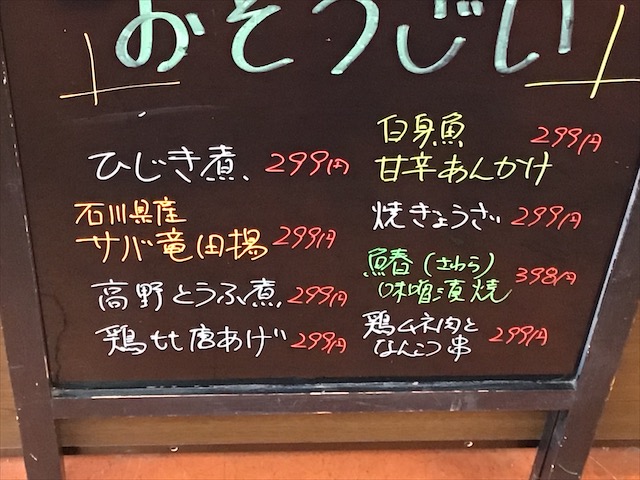 おそうじい
ひじき煮
299円
石川県産
サバ竜田揚
299円
高野とうふ煮
299円
鶏モモ唐あげ
299円
白身魚
甘辛あんかけ
299円
焼きょうざ
299円
鰆(さわら)
味噌漬焼
398円
鶏ムネ肉と
なんこつ串
299円